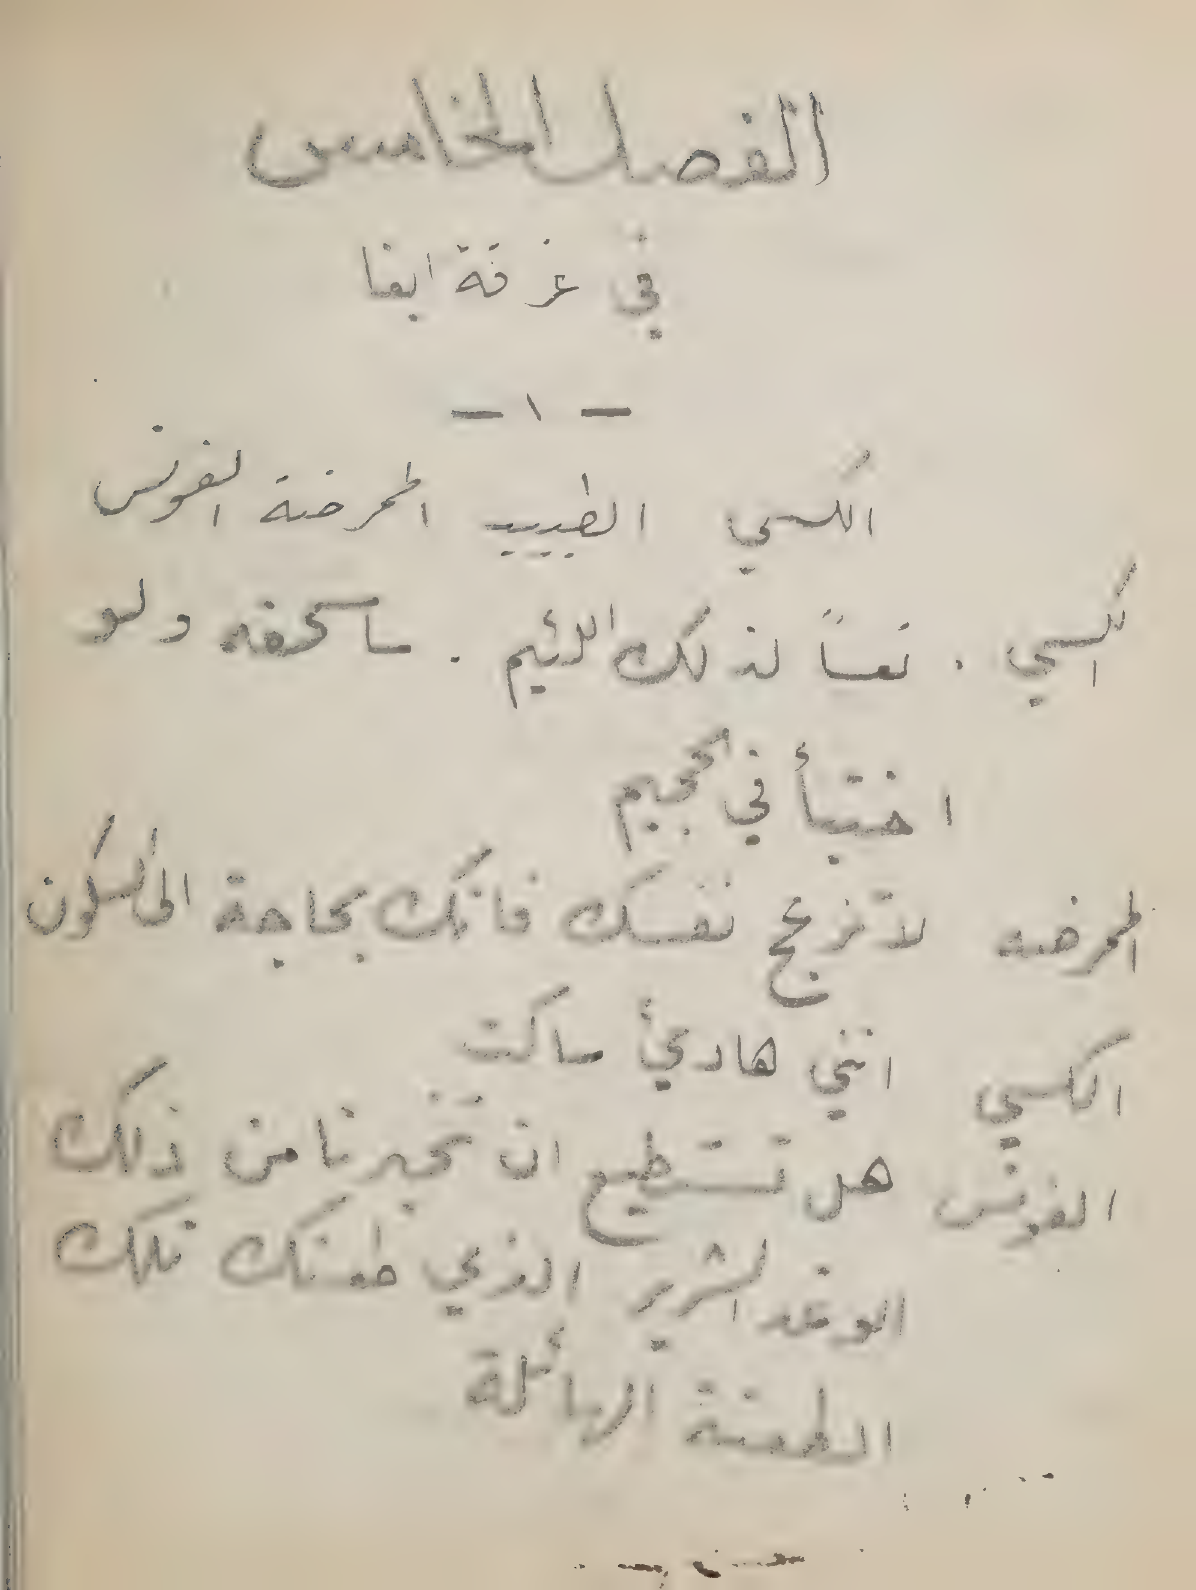 الفصل الخامس
في غرفة ايفا
— ١ —
الكسي الطبيب الممرضة الفونس
الكسي . تعساً لذلك اللئيم . ساسحقه ولو
اختبأ في الجحيم
الممرضه لا تزعج نفسك فانك بحاجة الى السكون
الكسي انني هاديأ ساكت
الفونس هل تستطيع ان تخبرنا من ذلك
الوغد الشرير الذي طعنك تلك
الطعنة الهائلة